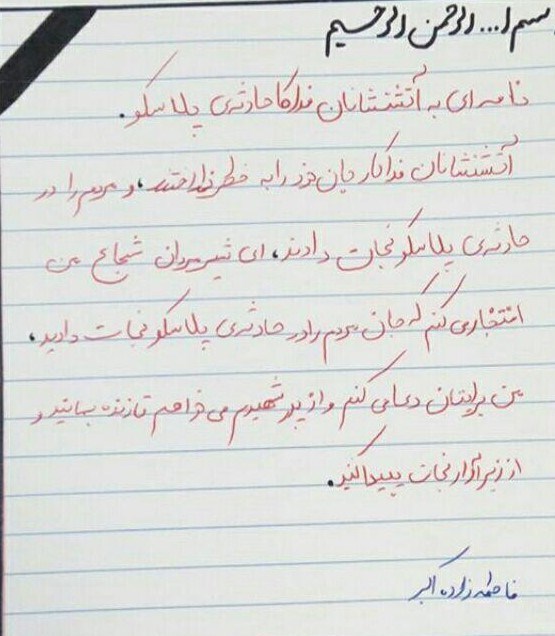 بسم ا... الرحمن الرحیم
نامه‌ای به آتشنشانان فداکار حادثه‌ی پلاسکو.
آتشنشانان فداکار جان خود را به خطر انداختند، و مردم را در
حادثه‌ی پلاسکو نجات دادند، ای شیرمردان شجاع من
افتخار می کنم که جان مردم را در حادثه‌ی پلاسکو نجات دادید،
من برایتان دعا می کنم و از پدر شهیدم می خواهم تا زنده بمانید و
از زیر آوار نجات پیدا کنید.
فاطمه زاده اکبر